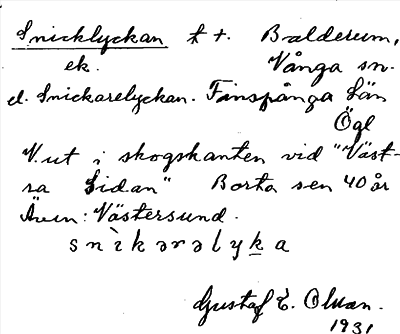 Snicklyckan t. Balderum,
ek. Vånga sn.
el. Snickarelyckan. Finspånga län
Ögl
V. ut i skogskanten vid "Väst-
ra Sidan" Borta sen 40 år
Även: Västersund.
snìkarəlyka
Gustaf E. Olsson.
1931